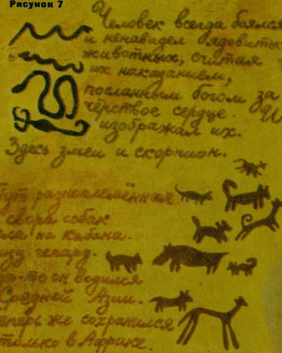 Рисунок 7
Человек всегда боялся
и ненавидел ядовитых
животных, считая
их наказанием,
посланным богом за
чёрствое сердце. И
изображал их.
Здесь змеи и скорпион.
Тут разноплемённая
свора собак
на кабана.
гепард.
то он водился
Средней Азии.
теперь же сохранился
только в Африке.